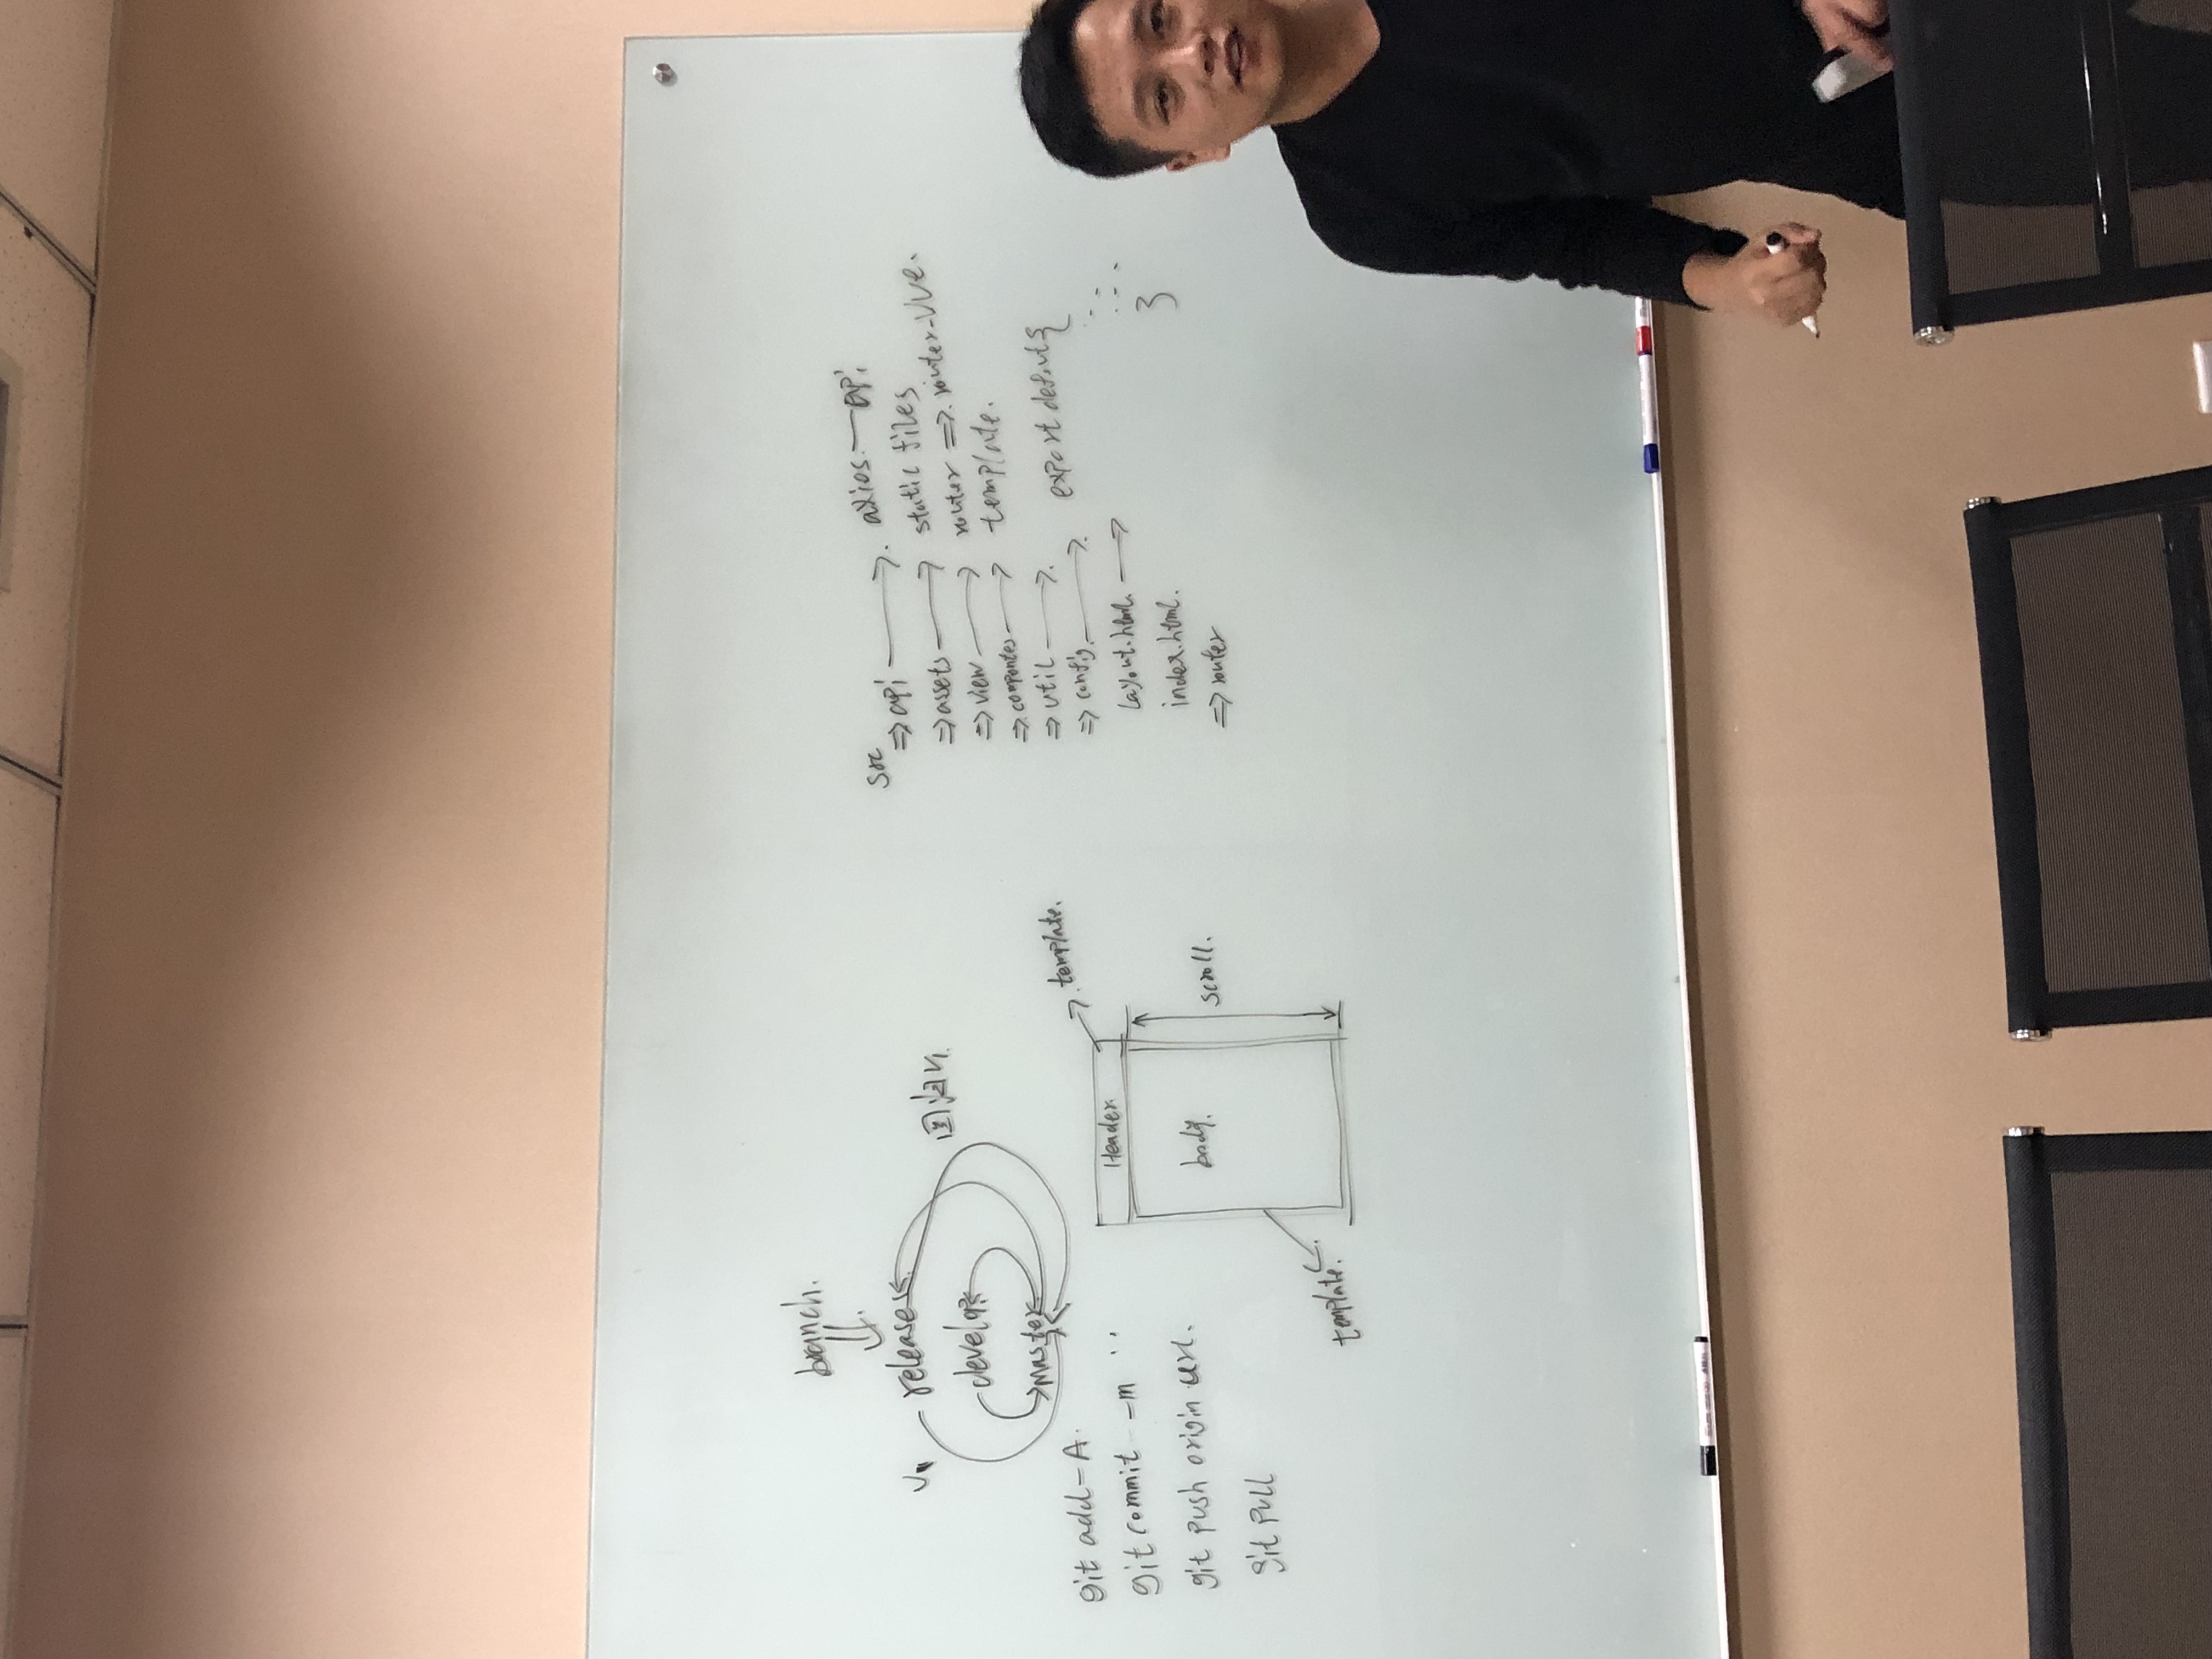 branch.
release
develop
master
回归V1.
git add -A.
git commit -m ''
git push origin url.
git pull
template.
Header.
body.
scroll.
template.
src
=> api → axios — api
=> assets → static files
=> view → router => router-vue.
=> compontes → template.
=> util →
=> config. → export defaut {
}
layout.html. →
index.html.
=> router